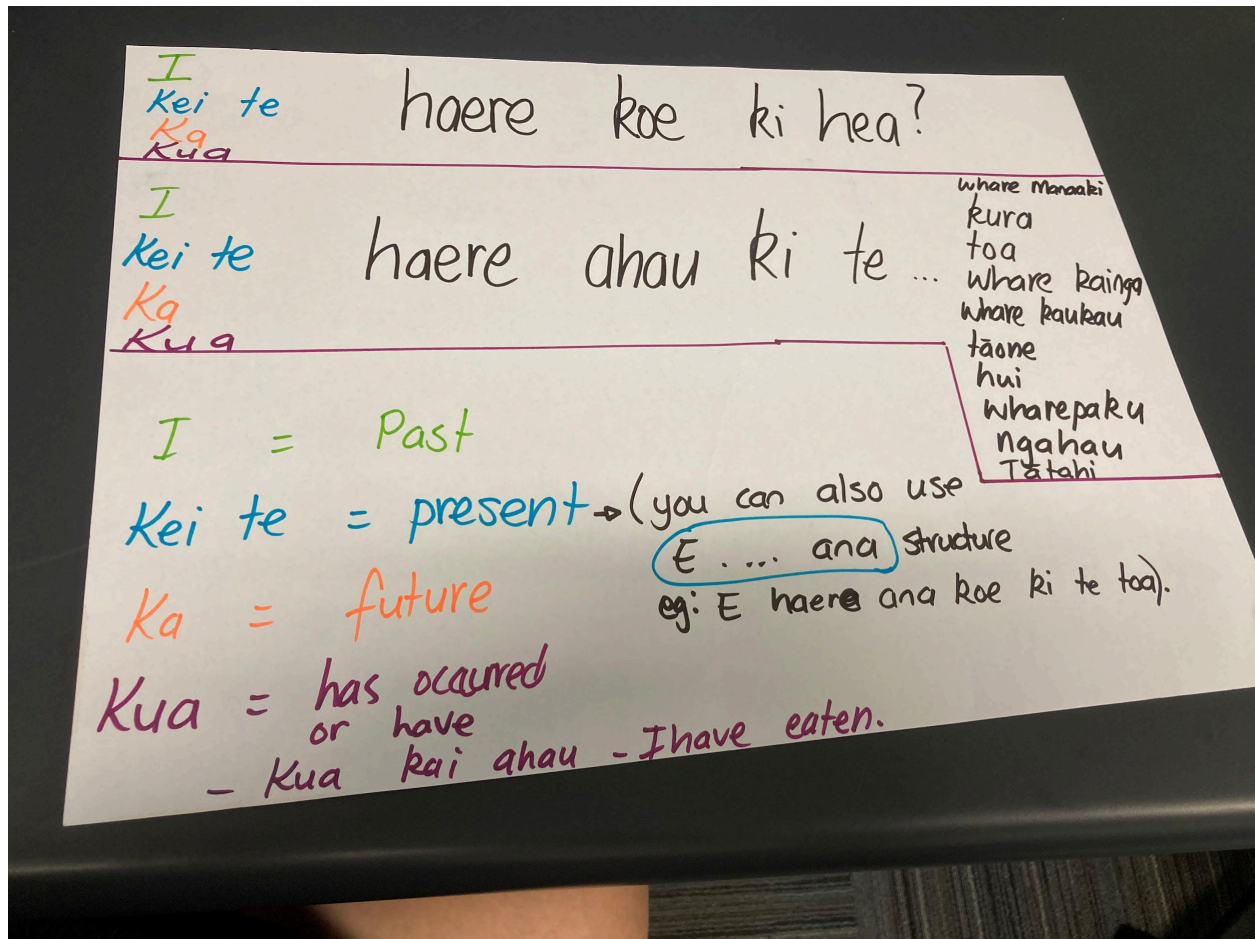 I
Kei te
Ka
Kua
haere koe ki hea?
I
Kei te
Ka
Kua
haere ahau ki te ...
whare Manaaki
kura
toa
whare kainga
whare kaukau
tāone
hui
wharepaku
ngahau
Tātahi
I = Past
Kei te = present → (you can also use
E .... ana structure
eg: E haere ana koe ki te toa).
Ka = future
Kua = has ocaured
or have
- Kua kai ahau - I have eaten.